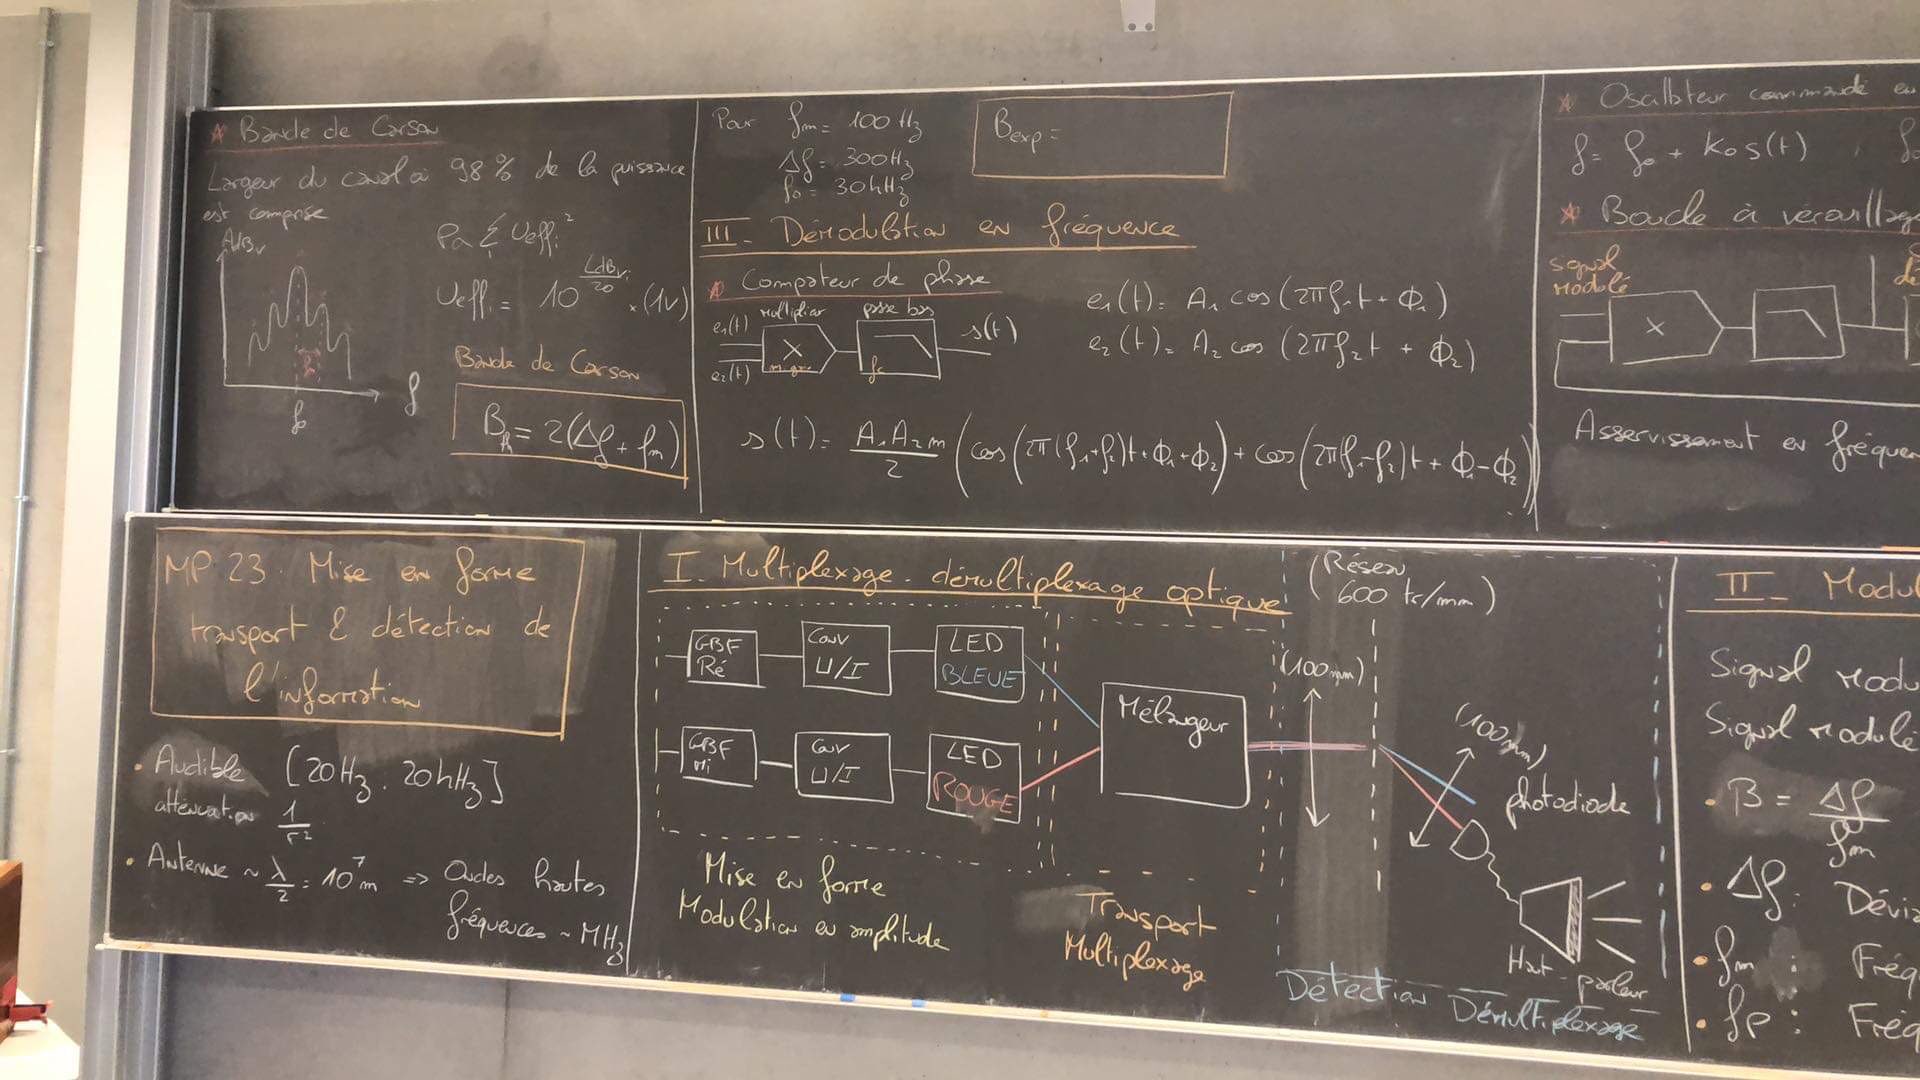 * Bande de Carson
Largeur du canal où 98% de la puissance
est comprise
AdBv
f
f₀
Pα Σ Ueffᵢ²
Ueffᵢ = 10^(LdBvᵢ/20) × (1V)
Bande de Carson
Bth = 2(Δf + fm)
Pour fm = 100 Hz
Δf = 300 Hz
f₀ = 30 kHz
Bexp =
III_ Démodulation en fréquence
* Comparateur de phase
multiplieur
passe bas
e₁(t)
e₂(t)
X
fc
s(t)
e₁(t) = A₁ cos (2πf₁t + Φ₁)
e₂(t) = A₂ cos (2πf₂t + Φ₂)
s(t) = A₁A₂m/2 (cos(2π(f₁+f₂)t + Φ₁+Φ₂) + cos(2π(f₁-f₂)t + Φ₁-Φ₂))
* Oscillateur commandé en
f = f₀ + k₀s(t)
* Boucle à vérouillage
signal
modulé
X
Asservissement en fréquen
MP 23. Mise en forme
transport & détection de
l'information
• Audible [20Hz. 20kHz]
atténuation 1/r²
• Antenne ~ λ/2 = 10⁷m => Ondes hautes
fréquences ~ MHz
I_ Multiplexage - démultiplexage optique
GBF
Ré
Conv
U/I
LED
BLEUE
GBF
Mi
Conv
U/I
LED
ROUGE
Mélangeur
(Réseau
600 tr/mm)
(100mm)
(100mm)
photodiode
Haut-parleur
Mise en forme
Modulation en amplitude
Transport
Multiplexage
Détection Démultiplexage
II_ Modul
Signal modu
Signal modulé
• β = Δf/fm
• Δf : Dévia
• fm : Fréq
• fp : Fréq